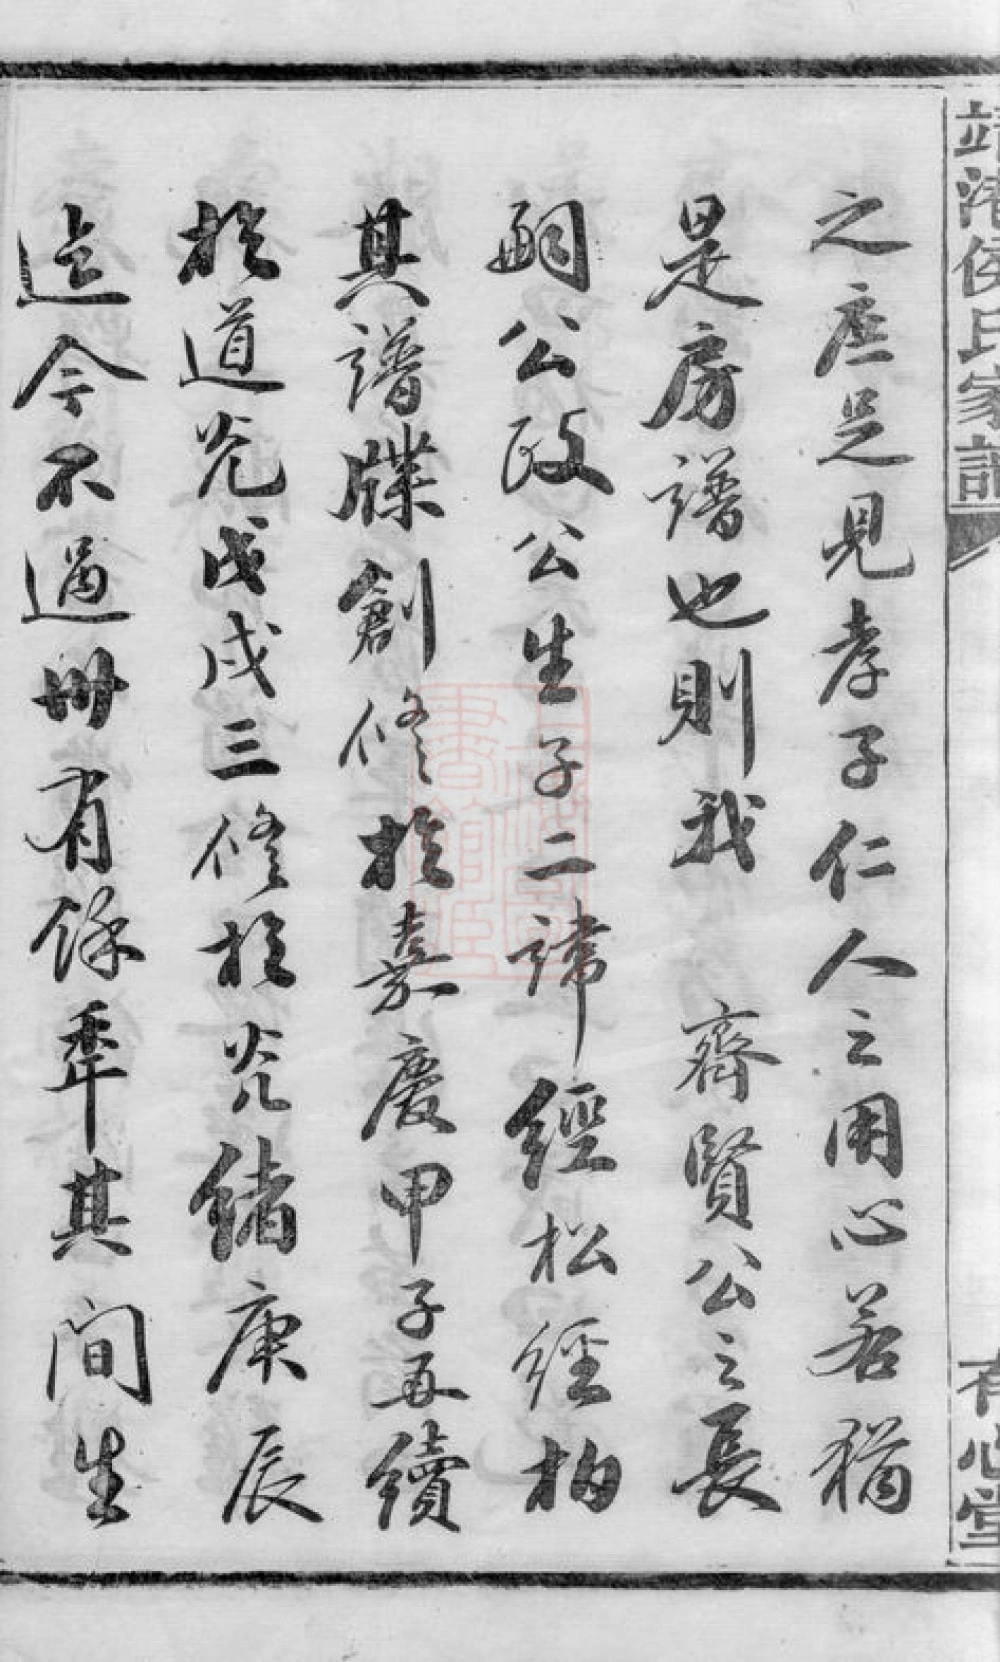 靖港侯氏家譜
有心堂
之庢足見孝子仁人之用心若猶
是房譜也則我 齊賢公之長
嗣公政公生子二諱經松經柏
其譜牒創修於嘉慶甲子再續
於道光戊戌三修於光緒庚辰
迄今不過卌有餘年其間生